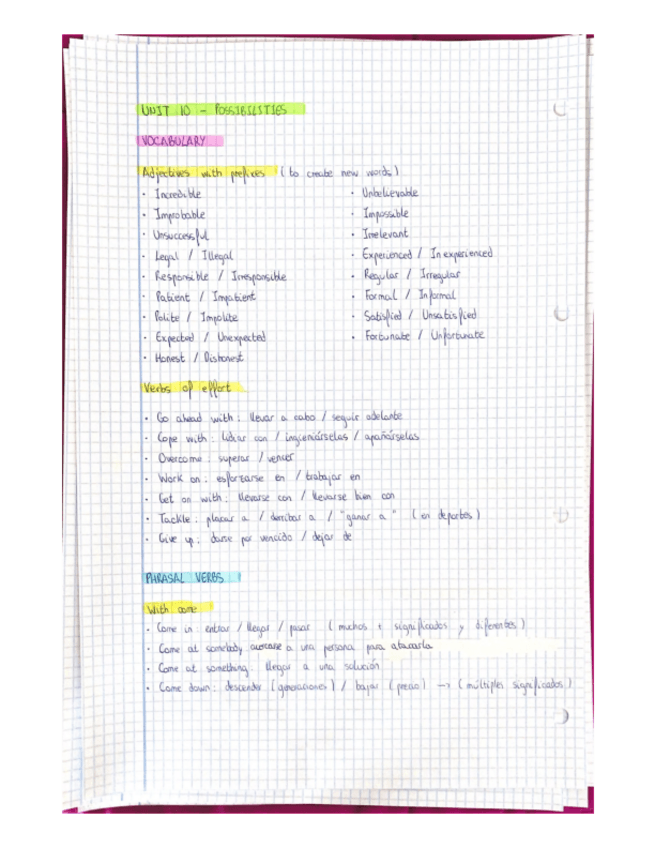 UNIT 10 - POSSIBILITIES
VOCABULARY
Adjectives with prefixes (to create new words)
· Incredible
· Improbable
· Unsuccessful
· Legal / Illegal
· Responsible / Irresponsible
· Patient / Impatient
· Polite / Impolite
· Expected / Unexpected
· Honest / Dishonest
· Unbelievable
· Impossible
· Irrelevant
· Experienced / Inexperienced
· Regular / Irregular
· Formal / Informal
· Satisfied / Unsatisfied
· Fortunate / Unfortunate
Verbs of effort
· Go ahead with: llevar a cabo / seguir adelante
· Cope with: lidiar con / ingeniárselas / apañárselas
· Overcome: superar / vencer
· Work on: esforzarse en / trabajar en
· Get on with: llevarse con / llevarse bien con
· Tackle: placar a / derribar a / "ganar a" (en deportes)
· Give up: darse por vencido / dejar de
PHRASAL VERBS
With come
· Come in: entrar / llegar / pasar (muchos + significados y diferentes)
· Come at somebody: acercarse a una persona para atacarla
· Come at something: llegar a una solución
· Come down: descender (generaciones) / bajar (precio) → (múltiples significados)